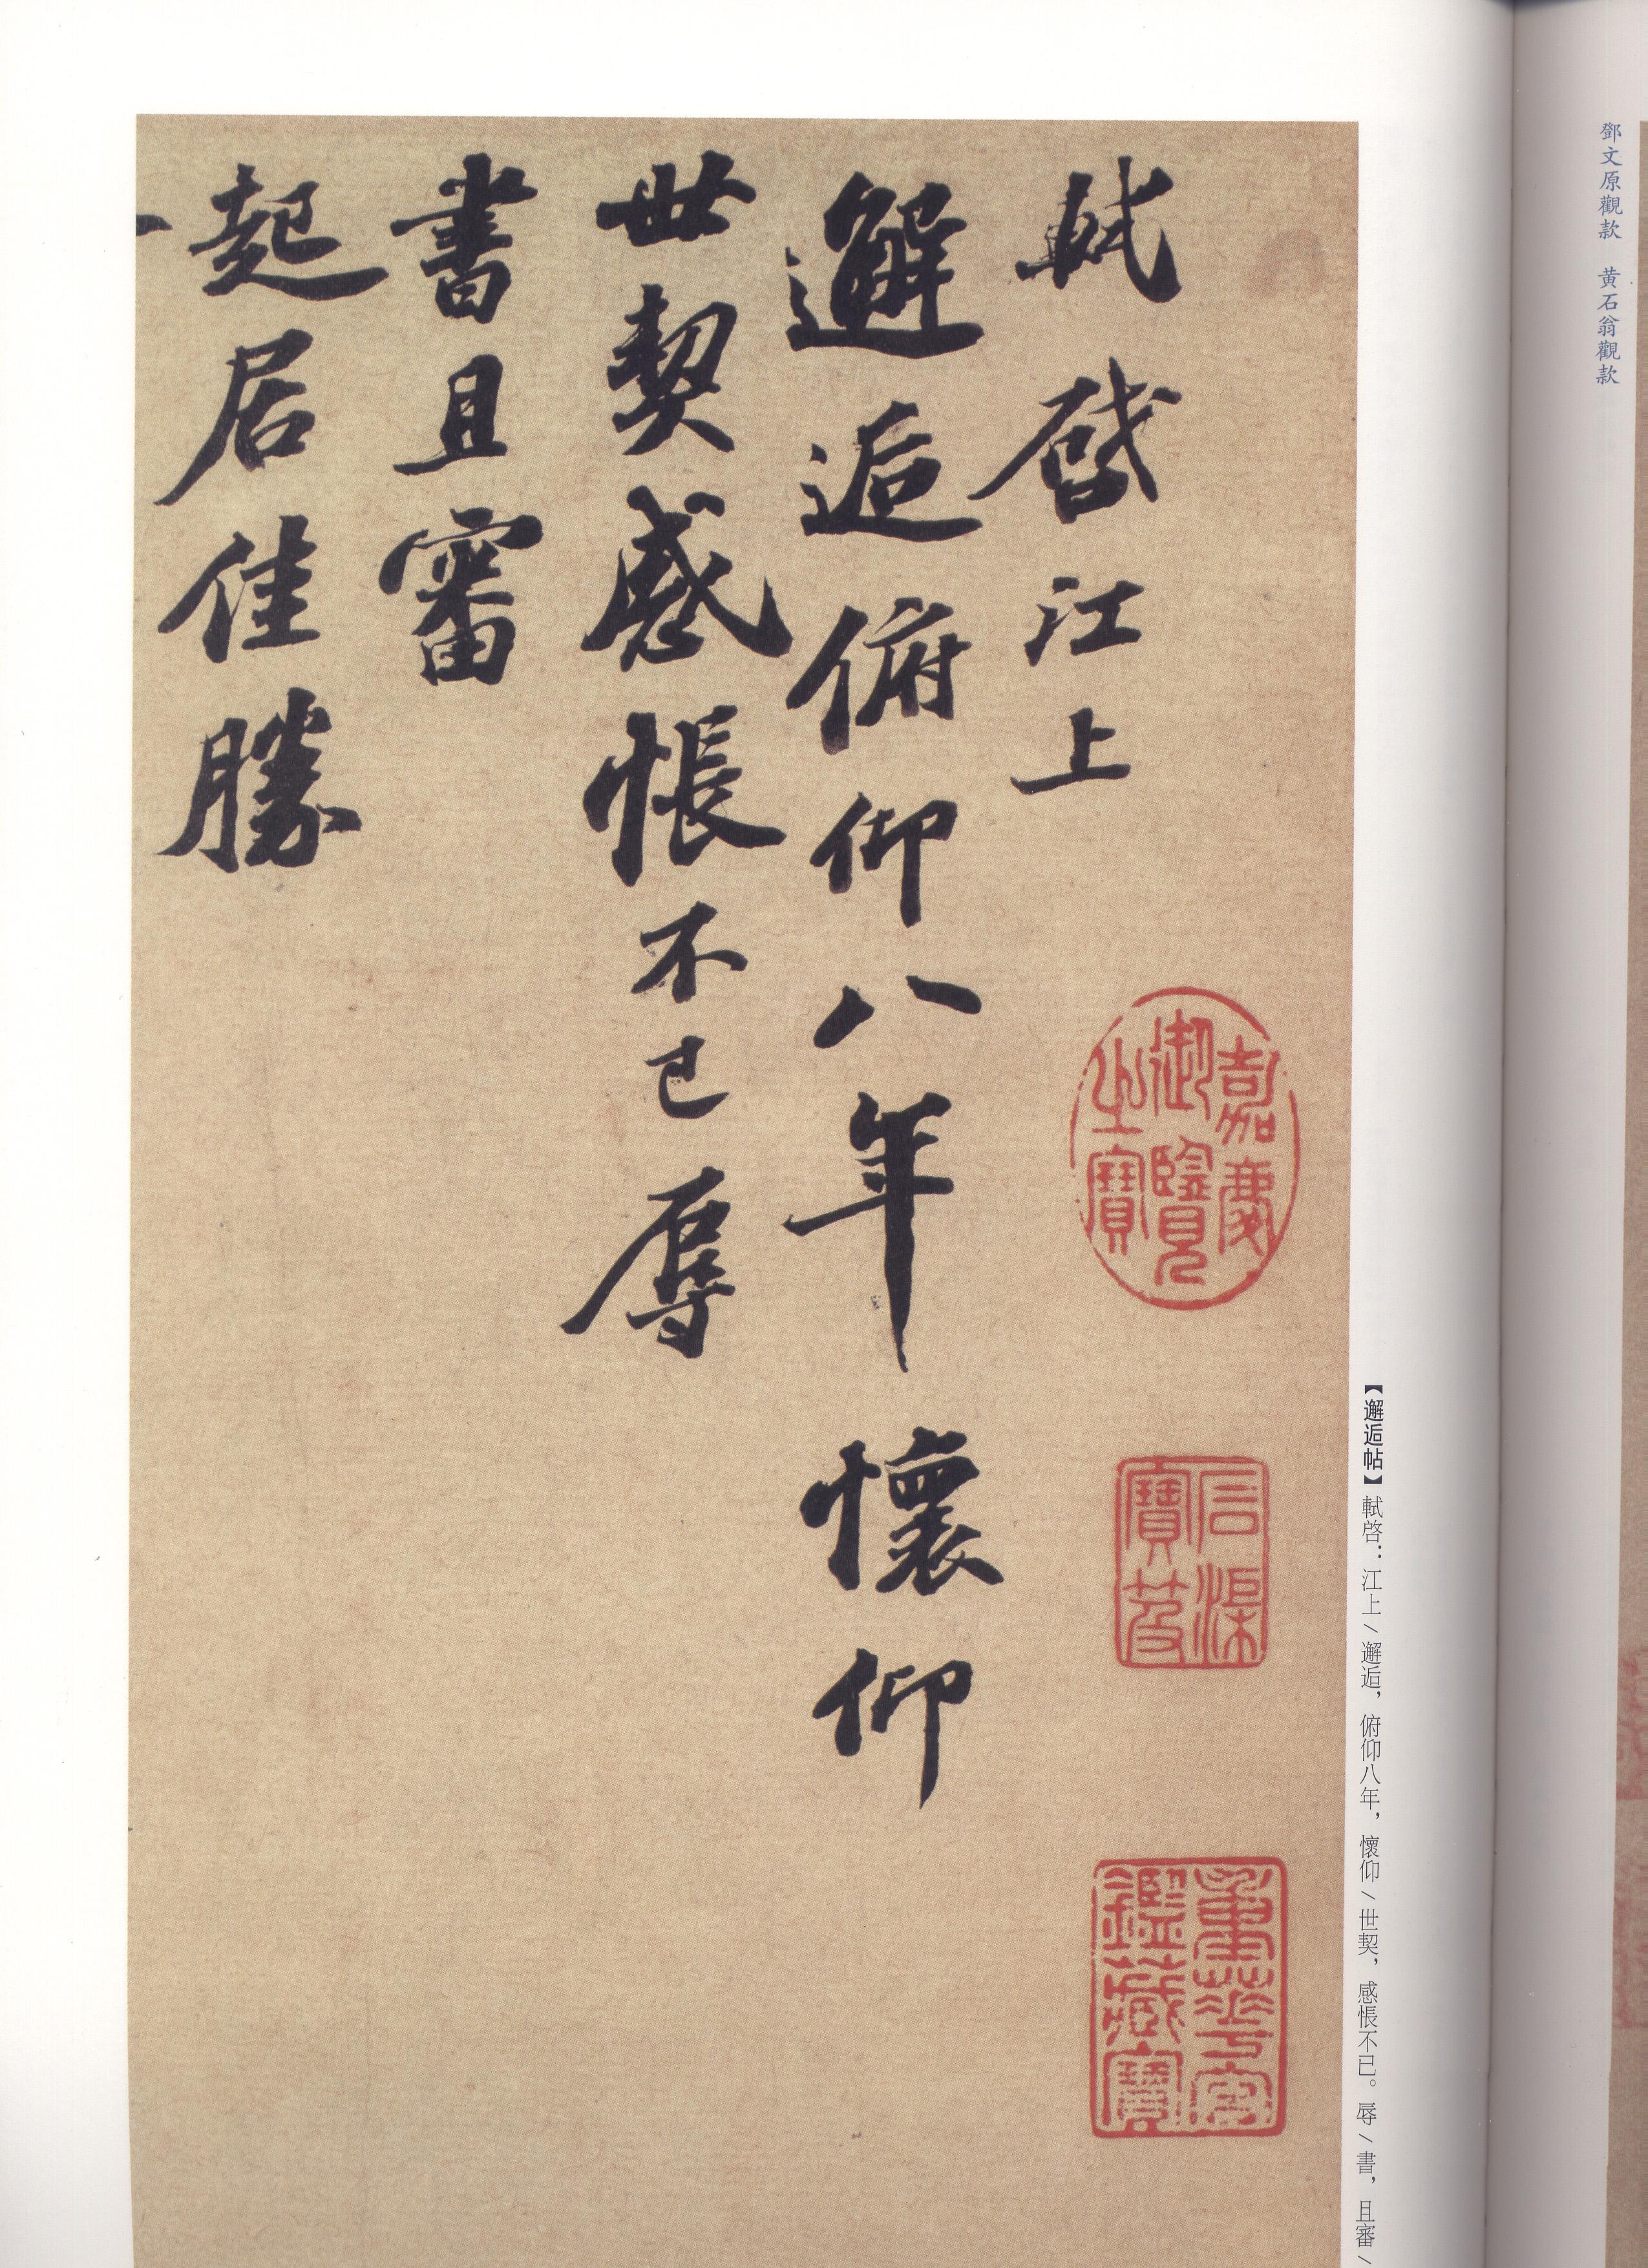 鄧文原觀款　黄石翁觀款
【邂逅帖】軾啓：江上\邂逅，俯仰八年，懷仰\世契，感悵不已。辱\書，且審\
軾啓江上
邂逅俯仰八年懷仰
世契感悵不已辱
書且審
起居佳勝
嘉慶
御覽
之寶
石渠
寶笈
重華宮
鑑藏寶